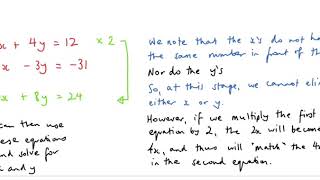 x + 4y = 12 x 2
x - 3y = -31
x + 8y = 24
can then use
these equations
and solve for
x and y
We note that the x's do not ha
the same number in front of th
Nor do the y's
So, at this stage, we cannot eli
either x or y.
However, if we multiply the first
equation by 2, the 2x will become
4x, and thus will "match" the 4x
in the second equation.